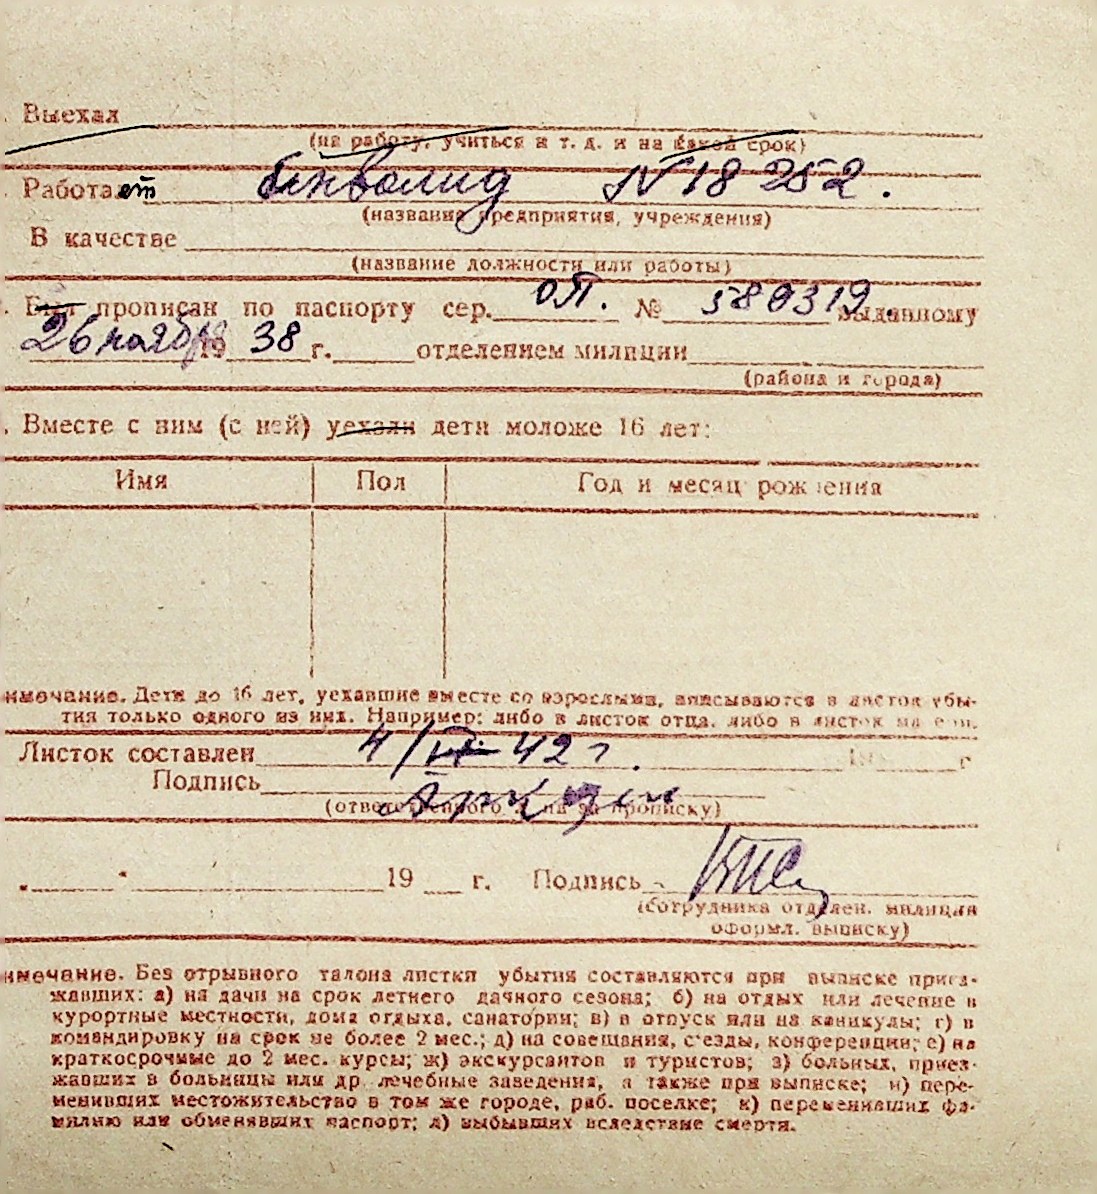 . Выехал
(на работу, учиться и т. д. и на какой срок)
. Работает инвалид № 18 252.
(название предприятия, учреждения)
В качестве
(название должности или работы)
. Был прописан по паспорту сер. ОЛ. № 580319. выданному
26 ноября 19 38 г. отделением милиции
(района и города)
. Вместе с ним (с ней) уехали дети моложе 16 лет:
Имя Пол Год и месяц рождения
имечание. Дети до 16 лет, уехавшие вместе со взрослыми, вписываются в листок убы-
тия только одного из них. Например: либо в листок отца, либо в листок матери.
Листок составлен 4/ 42 г. 19 г
Подпись
(ответственного за прописку)
" " 19 г. Подпись
(сотрудника отделен. милиции
оформл. выписку)
имечание. Без отрывного талона листки убытия составляются при выписке приез-
жавших: а) на дачи на срок летнего дачного сезона; б) на отдых или лечение в
курортные местности, дома отдыха, санатории; в) в отпуск или на каникулы; г) в
командировку на срок не более 2 мес.; д) на совещания, с'езды, конференции; е) на
краткосрочные до 2 мес. курсы; ж) экскурсантов и туристов; з) больных, приез-
жавших в больницы или др. лечебные заведения, а также при выписке; и) пере-
менивших местожительство в том же городе, раб. поселке; к) переменивших фа-
милию или обменявших паспорт; л) выбывших вследствие смерти.